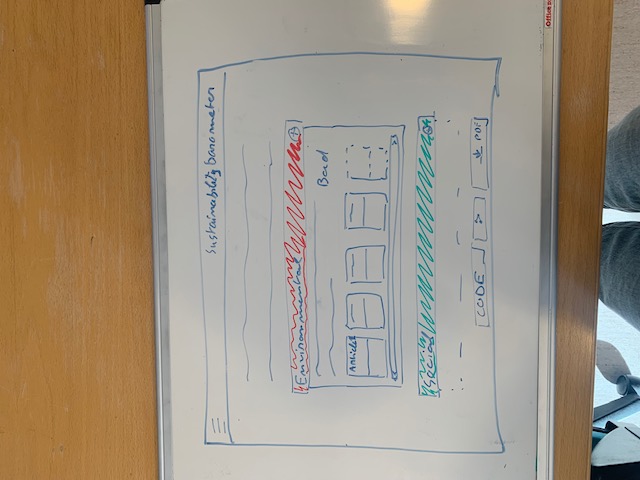 Sustainability barometer
Environmental
Bad
Article
Social
CODE
PDF
Office